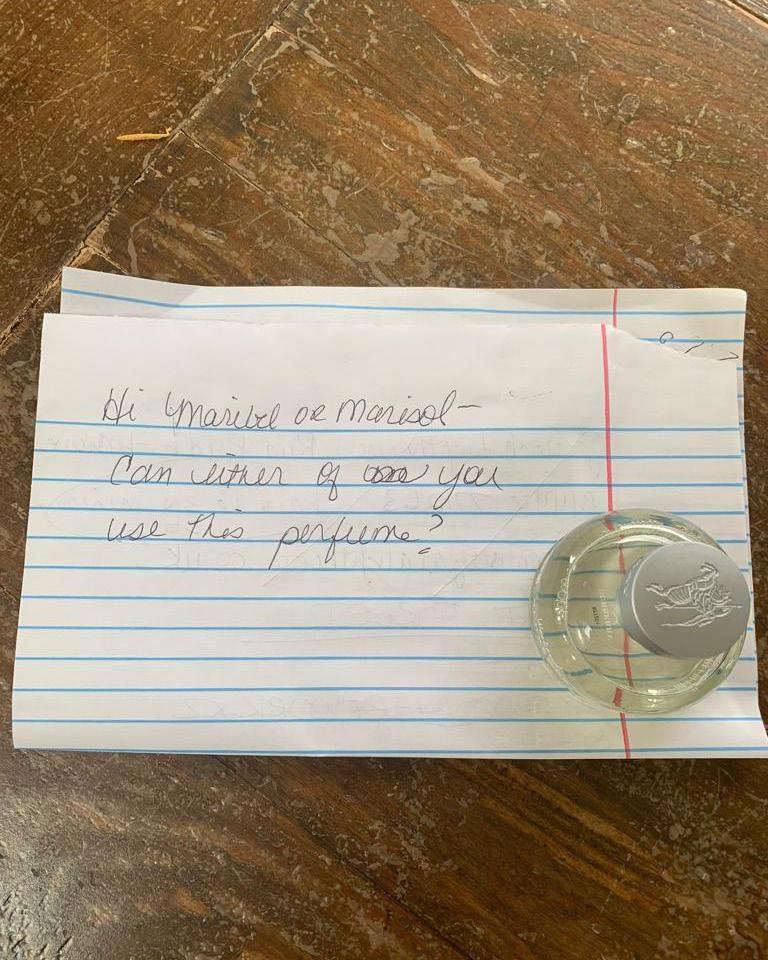 Hi Maribel or Marisol-
Can either of you
use this perfume?